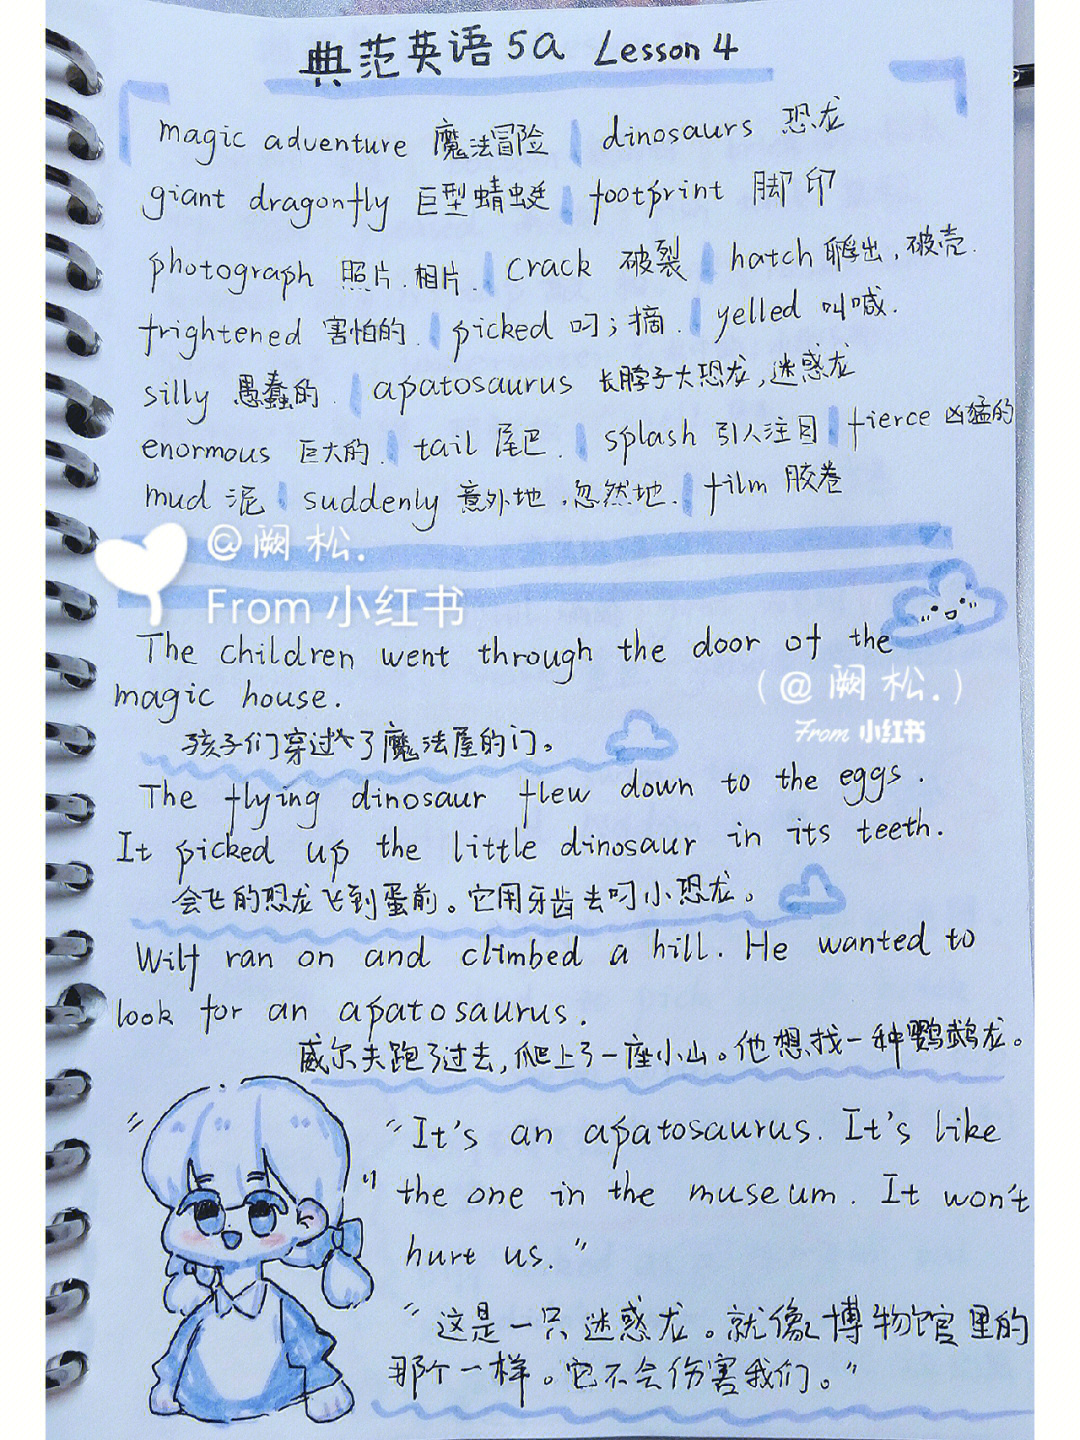 典范英语5a Lesson 4
magic adventure 魔法冒险 dinosaurs 恐龙
giant dragonfly 巨型蜻蜓 footprint 脚印
photograph 照片.相片. crack 破裂 hatch 孵出,破壳.
frightened 害怕的. picked 叼;摘. yelled 叫喊.
silly 愚蠢的. apatosaurus 长脖子大恐龙,迷惑龙
enormous 巨大的. tail 尾巴. splash 引人注目 fierce 凶猛的
mud 泥 suddenly 意外地.忽然地. film 胶卷
@阙 松.
From 小红书
The children went through the door of the
magic house.
(@阙 松.)
From 小红书
孩子们穿过了魔法屋的门。
The flying dinosaur flew down to the eggs.
It picked up the little dinosaur in its teeth.
会飞的恐龙飞到蛋前。它用牙齿去叼小恐龙。
Wilf ran on and climbed a hill. He wanted to
look for an apatosaurus.
威尔夫跑了过去,爬上了一座小山。他想找一种鹦鹉龙。
"It's an apatosaurus. It's like
the one in the museum. It won't
hurt us."
"这是一只迷惑龙。就像博物馆里的
那个一样。它不会伤害我们。"